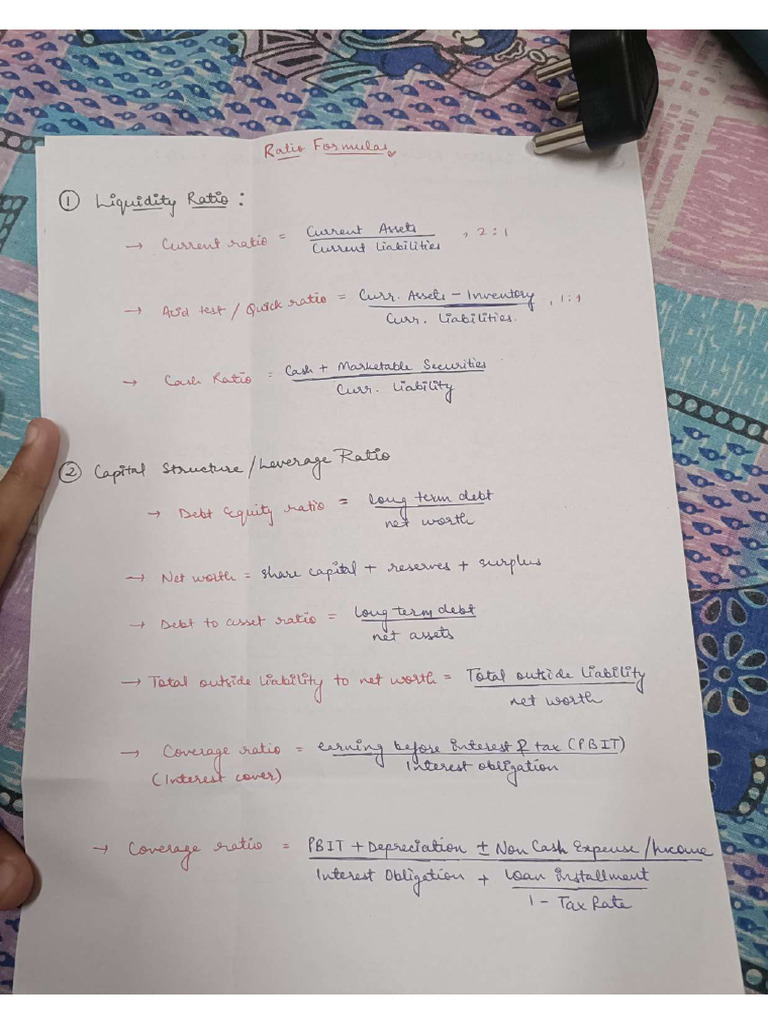 Ratio Formulas
① Liquidity Ratio :
→ Current ratio = Current Assets / Current Liabilities , 2 : 1
→ Acid test / Quick ratio = Curr. Assets – Inventory / Curr. Liabilities. , 1 : 1
→ Cash Ratio = Cash + Marketable Securities / Curr. Liability
② Capital Structure / Leverage Ratio
→ Debt Equity ratio = long term debt / net worth
→ Net worth = share capital + reserves + surplus
→ Debt to asset ratio = long term debt / net assets
→ Total outside liability to net worth = Total outside liability / net worth
→ Coverage ratio = earning before interest & tax (PBIT) / Interest obligation
(Interest cover)
→ Coverage ratio = PBIT + Depreciation ± Non Cash Expense / Income
Interest Obligation + Loan Installment / 1 - Tax Rate